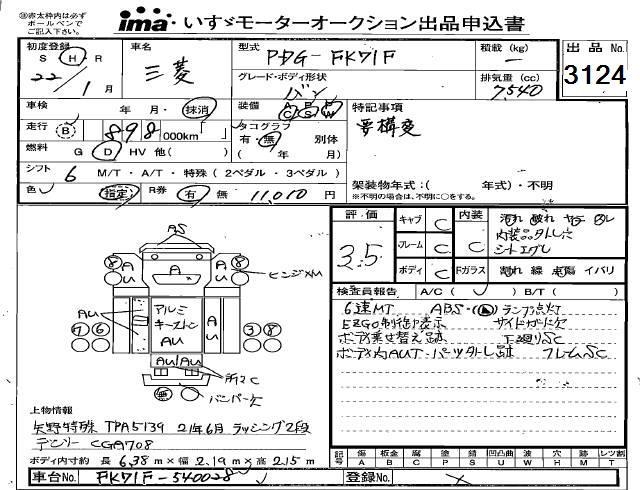 ※赤太枠内は必ず
ボールペンで
ご記入下さい。
ima いすゞモーターオークション出品申込書
初度登録
S H R
22/1月
車名
三菱
型式
PDG-FK71F
グレード・ボディ形状
バン
積載 (kg)
ー
排気量 (cc)
7540
出品No
3124
車検
年 月・抹消
走行
B 898 000km
装備
A P P
C S W
タコグラフ
有・無 別体
( 年 月)
燃料
G D HV 他( )
シフト
6 M/T・A/T・特殊 (2ペダル・3ペダル)
色
指定
R券 有 無 11,010円
特記事項
要構変
架装物年式：( 年式)・不明
※不明の場合は、不明に○をする。
評価
3.5
キャブ C
フレーム C
ボディ C
内装 C
Fガラス
汚れ 破れ ヤケ
内装品外し穴
シートエグレ
割れ 線 イバリ
検査員報告
A/C ( ) B/T( )
6速MT ABS・ ランプ点灯
EZGO制御?表示 サイドガード欠
ボディ乗せ替え跡 下廻りSC
ボディ内AUT・パーツ外し跡 フレームSC
AS
A
AU
ヒンジメAU
アルミ
キーストン
AU
AU AU
所々C
バンパー欠
8 8
7 6 3 8
無
上物情報
矢野特殊 TPA5139 21年6月 ラッシング2段
デンソー CGA708
ボディ内寸約 長 6.38 m×幅 2.19 m×高 2.15 m
記号 傷 A 板金 B 腐 C 塗 P 錆 S 凹凸曲 U 波 W 穴 H 跡 M レツ割 T
車台No. FK71F-540028
登録No.